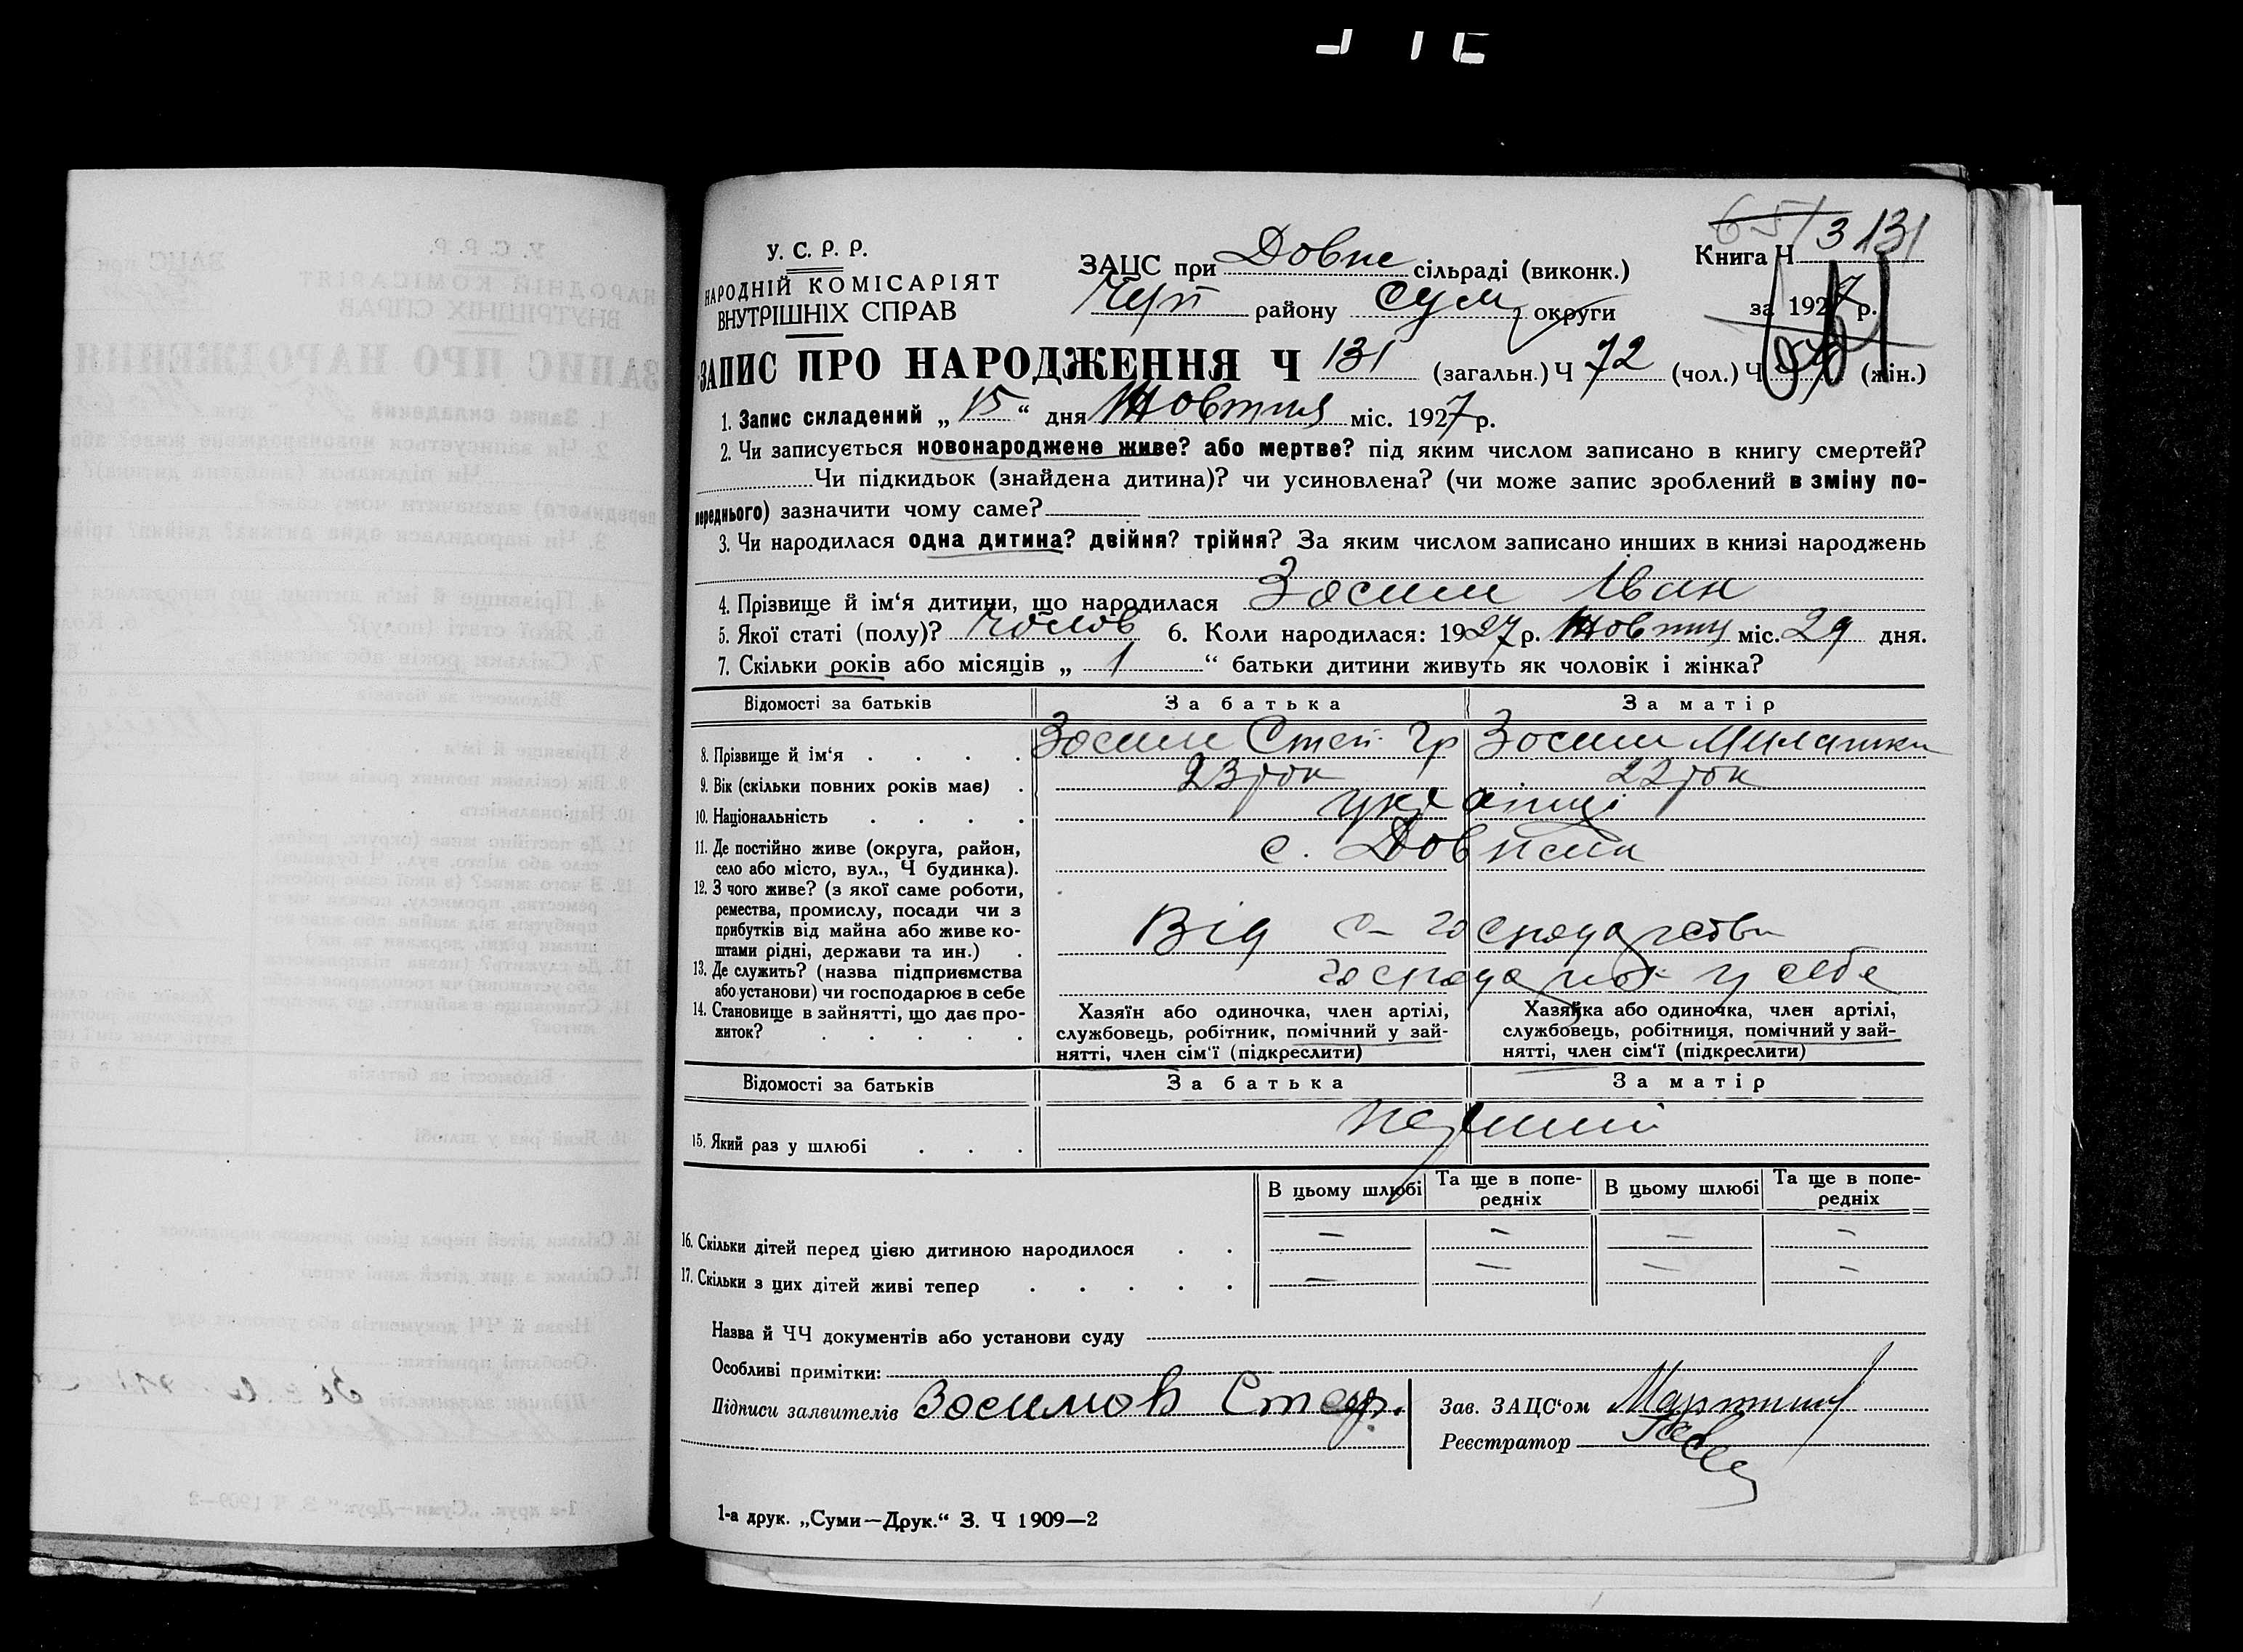 У. С. Р. Р.
НАРОДНІЙ КОМІСАРІЯТ
ВНУТРІШНІХ СПРАВ
ЗАЦС при Довпс сільраді (виконк.)
Черп району Сум округи
Книга Ч 3 131
за 1927 р.
ЗАПИС ПРО НАРОДЖЕННЯ Ч 131 (загальн.) Ч 72 (чол.) Ч (жін.)
1. Запис складений „ 15 “ дня Жовтня міс. 1927 р.
2. Чи записується новонароджене живе? або мертве? під яким числом записано в книгу смертей?
Чи підкидьок (знайдена дитина)? чи усиновлена? (чи може запис зроблений в зміну по-
переднього) зазначити чому саме?
3. Чи народилася одна дитина? двійня? трійня? За яким числом записано инших в книзі народжень
4. Прізвище й ім‘я дитини, що народилася Зосим Іван
5. Якої статі (полу)? чолов 6. Коли народилася: 1927 р. Жовтня міс. 29 дня.
7. Скільки років або місяців „ 1 “ батьки дитини живуть як чоловік і жінка?
Відомості за батьків За батька За матір
8. Прізвище й ім‘я Зосим Степ. Гр Зосим Милашки
9. Вік (скільки повних років має) 23 рок 22 рок
10. Національність українці
11. Де постійно живе (округа, район,
село або місто, вул., Ч будинка). с.
12. З чого живе? (з якої саме роботи,
ремества, промислу, посади чи з
прибутків від майна або живе ко-
штами рідні, держави та ин.) Від с-господарства
13. Де служить? (назва підприємства
або установи) чи господарює в себе у себе
14. Становище в зайнятті, що дає про-
житок?
Хазяїн або одиночка, член артілі,
службовець, робітник, помічний у зай-
нятті, член сім‘ї (підкреслити)
Хазяйка або одиночка, член артілі,
службовець, робітниця, помічний у зай-
нятті, член сім‘ї (підкреслити)
Відомості за батьків За батька За матір
15. Який раз у шлюбі перший
В цьому шлюбі Та ще в попе-
редніх В цьому шлюбі Та ще в попе-
редніх
16. Скільки дітей перед цією дитиною народилося — — — —
17. Скільки з цих дітей живі тепер — — — —
Назва й ЧЧ документів або установи суду
Особливі примітки:
Підписи заявителів Зосимов Зав. ЗАЦС‘ом
Реєстратор
1-а друк. „Суми—Друк.“ З. Ч 1909—2